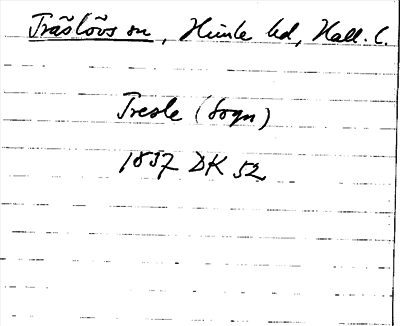 Träslövs sn, Himle hd, Hall. l.
Tresle (Sogn)
1537 DK 52